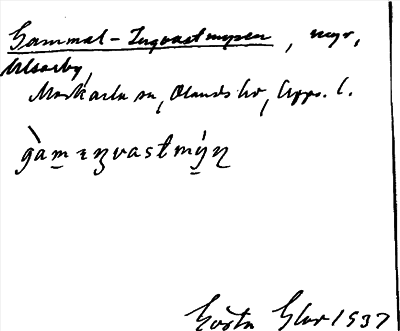 Gammal-Ingvastmyren, myr,
Ulvarby,
Markarla sn, Olands hd, Upps. l.
gamıŋvastmýn
Gösta Glar 1937